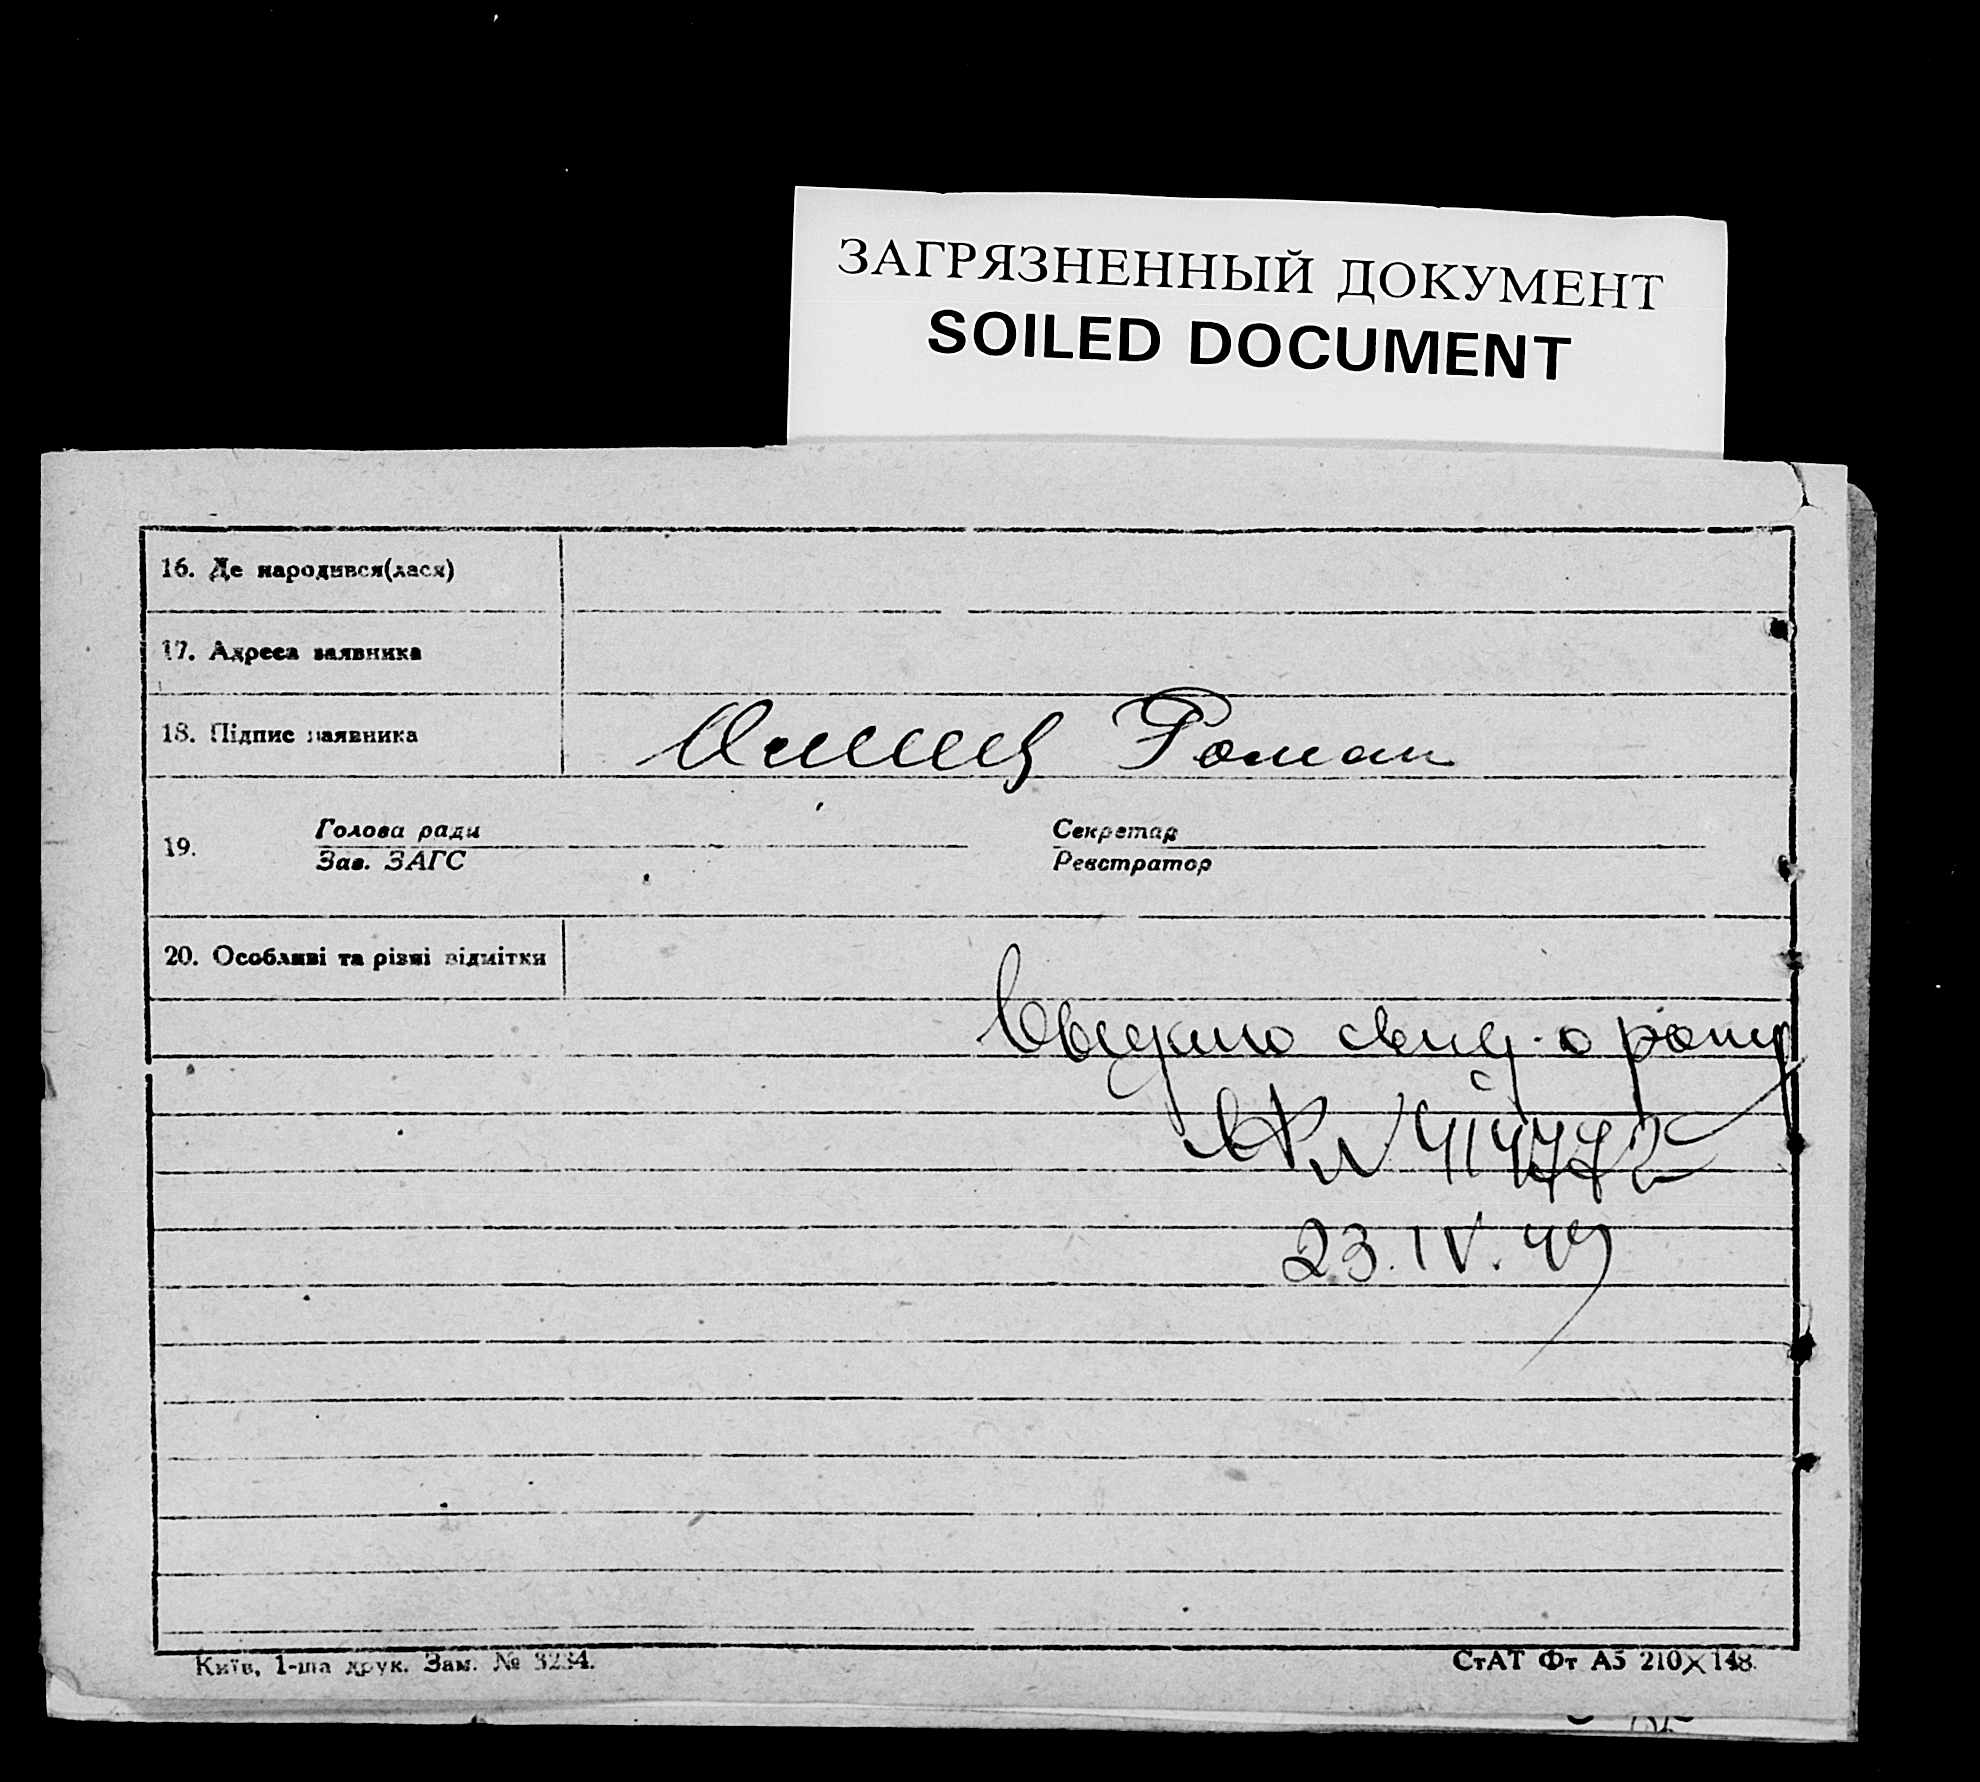 ЗАГРЯЗНЕННЫЙ ДОКУМЕНТ
SOILED DOCUMENT
16. Де народився(лася)
17. Адреса заявника
18. Підпис заявника
Роман
19.
Голова ради
Секретар
Зав. ЗАГС
Реєстратор
20. Особливі та різні відмітки
свид. о рожд
№ 414772
23.IV.49
Київ, 1-ша друк. Зам. № 3234.
СтАТ Фт А5 210×148.